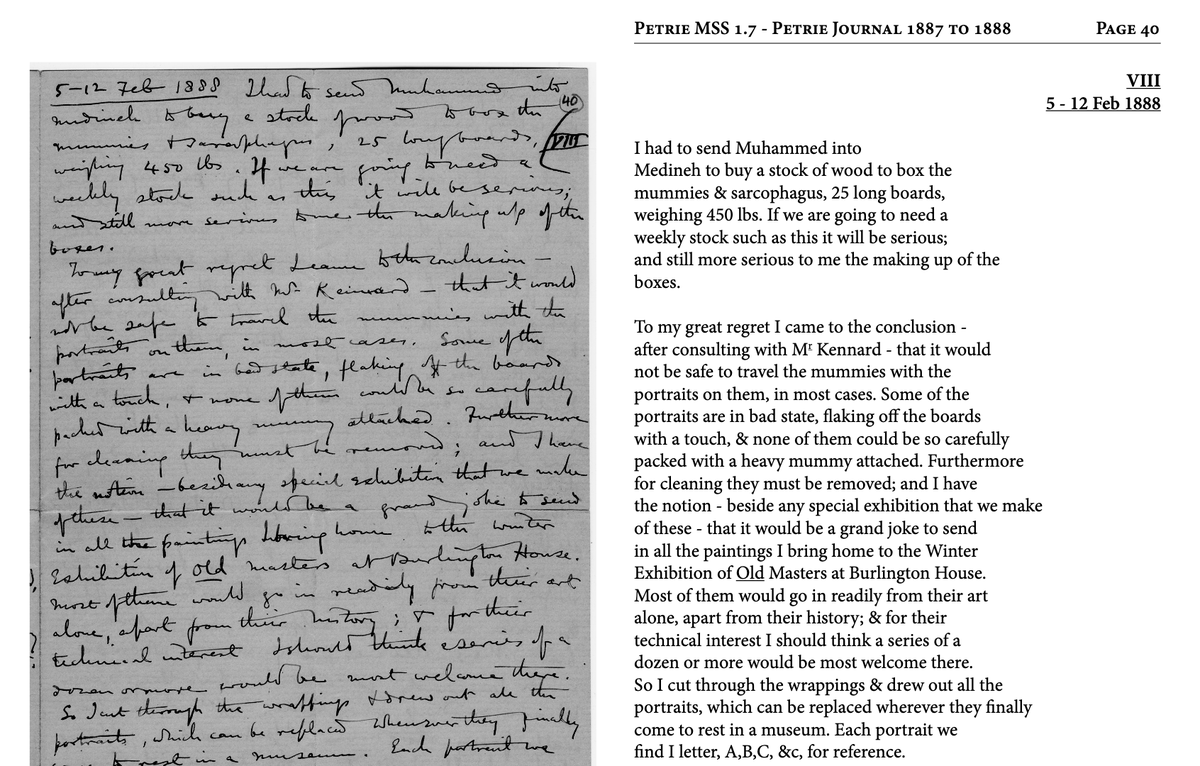 5-12 Feb 1888 I had to send Muhammed into
40
Medineh to buy a stock of wood to box the
mummies & sarcophagus, 25 long boards,
VIII
weighing 450 lbs. If we are going to need a
weekly stock such as this it will be serious;
and still more serious to me the making up of the
boxes.
To my great regret I came to the conclusion –
after consulting with Mr Kennard – that it would
not be safe to travel the mummies with the
portraits on them, in most cases. Some of the
portraits are in bad state, flaking off the boards
with a touch, & none of them could be so carefully
packed with a heavy mummy attached. Furthermore
for cleaning they must be removed; and I have
the notion – beside any special exhibition that we make
of these – that it would be a grand joke to send
in all the paintings I bring home to the Winter
Exhibition of Old Masters at Burlington House.
Most of them would go in readily from their art
alone, apart from their history; & for their
technical interest I should think a series of a
dozen or more would be most welcome there.
So I cut through the wrappings & drew out all the
portraits, which can be replaced wherever they finally
come to rest in a museum. Each portrait we
Petrie MSS 1.7 - Petrie Journal 1887 to 1888 Page 40
VIII
5 - 12 Feb 1888
I had to send Muhammed into
Medineh to buy a stock of wood to box the
mummies & sarcophagus, 25 long boards,
weighing 450 lbs. If we are going to need a
weekly stock such as this it will be serious;
and still more serious to me the making up of the
boxes.
To my great regret I came to the conclusion -
after consulting with Mr Kennard - that it would
not be safe to travel the mummies with the
portraits on them, in most cases. Some of the
portraits are in bad state, flaking off the boards
with a touch, & none of them could be so carefully
packed with a heavy mummy attached. Furthermore
for cleaning they must be removed; and I have
the notion - beside any special exhibition that we make
of these - that it would be a grand joke to send
in all the paintings I bring home to the Winter
Exhibition of Old Masters at Burlington House.
Most of them would go in readily from their art
alone, apart from their history; & for their
technical interest I should think a series of a
dozen or more would be most welcome there.
So I cut through the wrappings & drew out all the
portraits, which can be replaced wherever they finally
come to rest in a museum. Each portrait we
find I letter, A,B,C, &c, for reference.